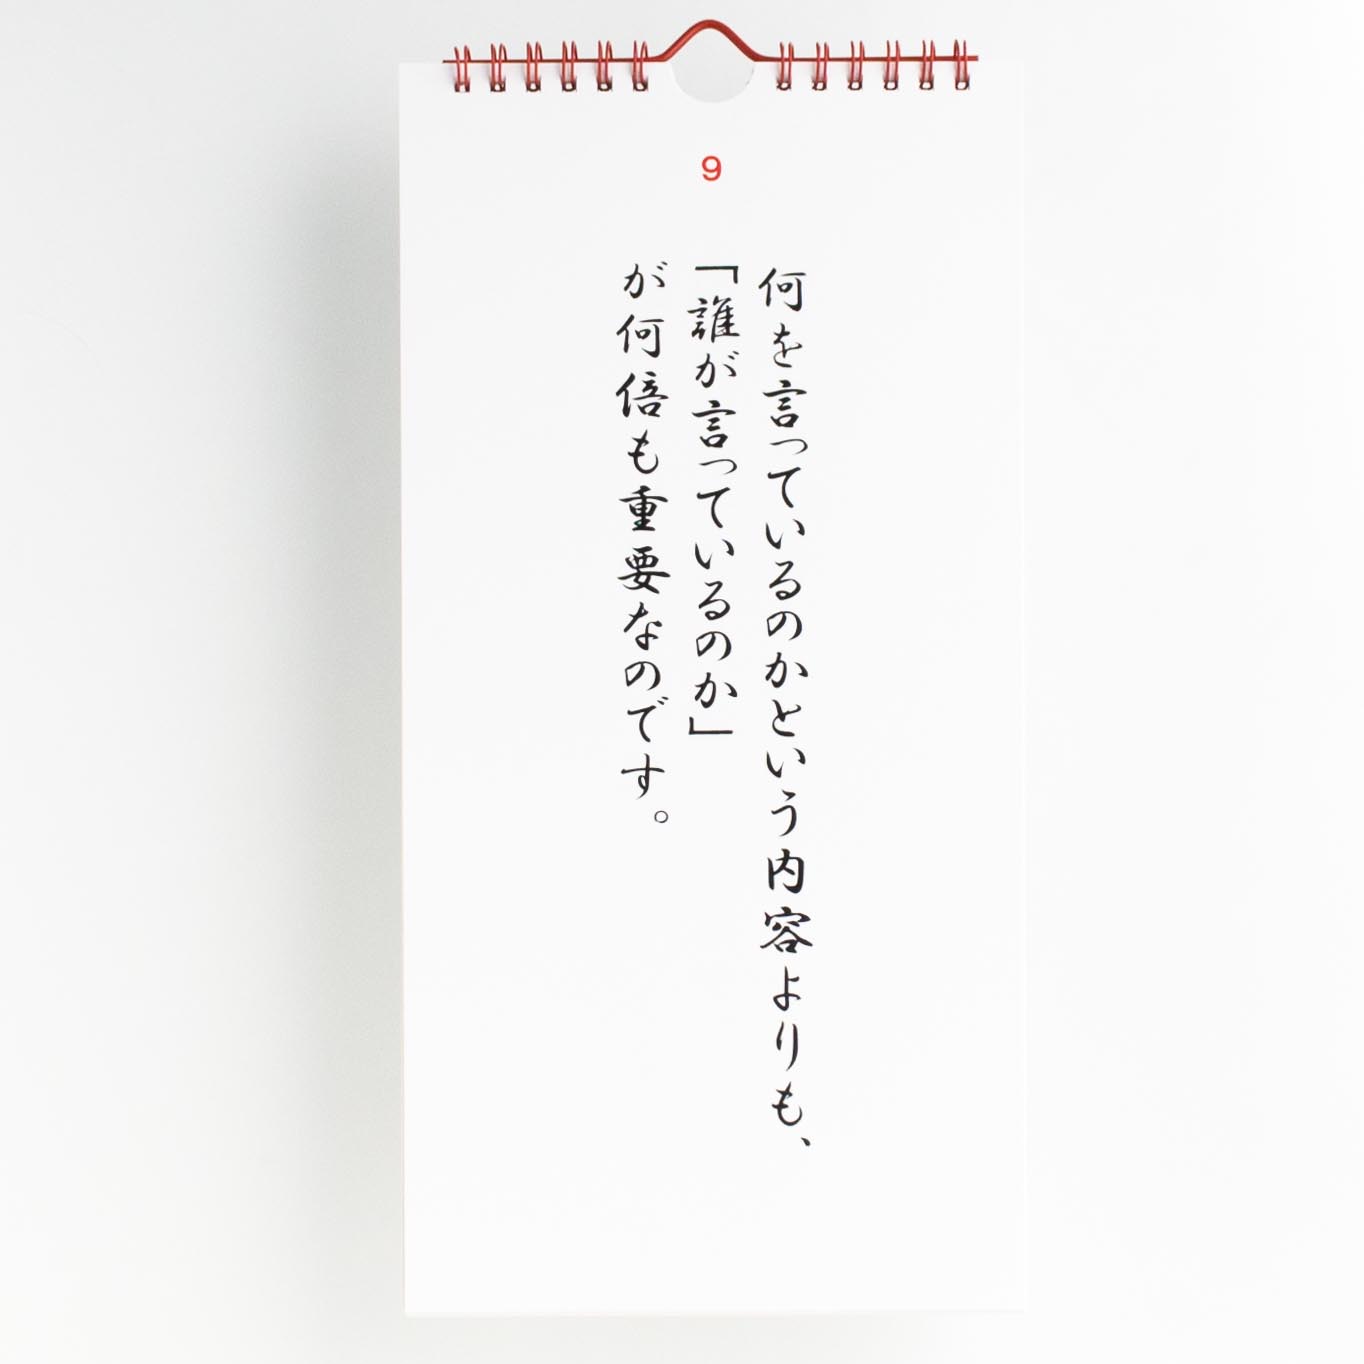 9
何を言っているのかという内容よりも、
「誰が言っているのか」
が何倍も重要なのです。